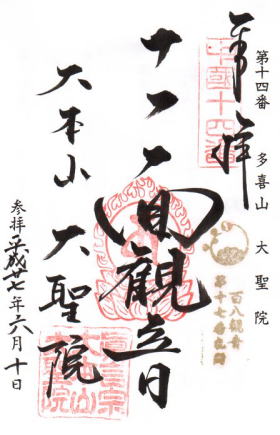 第十四番 多喜山 大聖院
奉拝
中國十四番
百八観音
第十七番札所
十一面觀音
大本山 大聖院
参拝平成廿七年六月十日